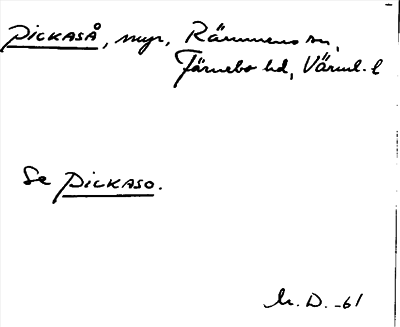 PICKASÅ, myr, Rämmens sn,
Färnebo hd, Värml. l
Se PICKASO.
M. D. -61